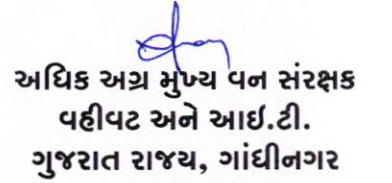 અધિક અગ્ર મુખ્ય વન સંરક્ષક
વહીવટ અને આઇ.ટી.
ગુજરાત રાજય, ગાંધીનગર